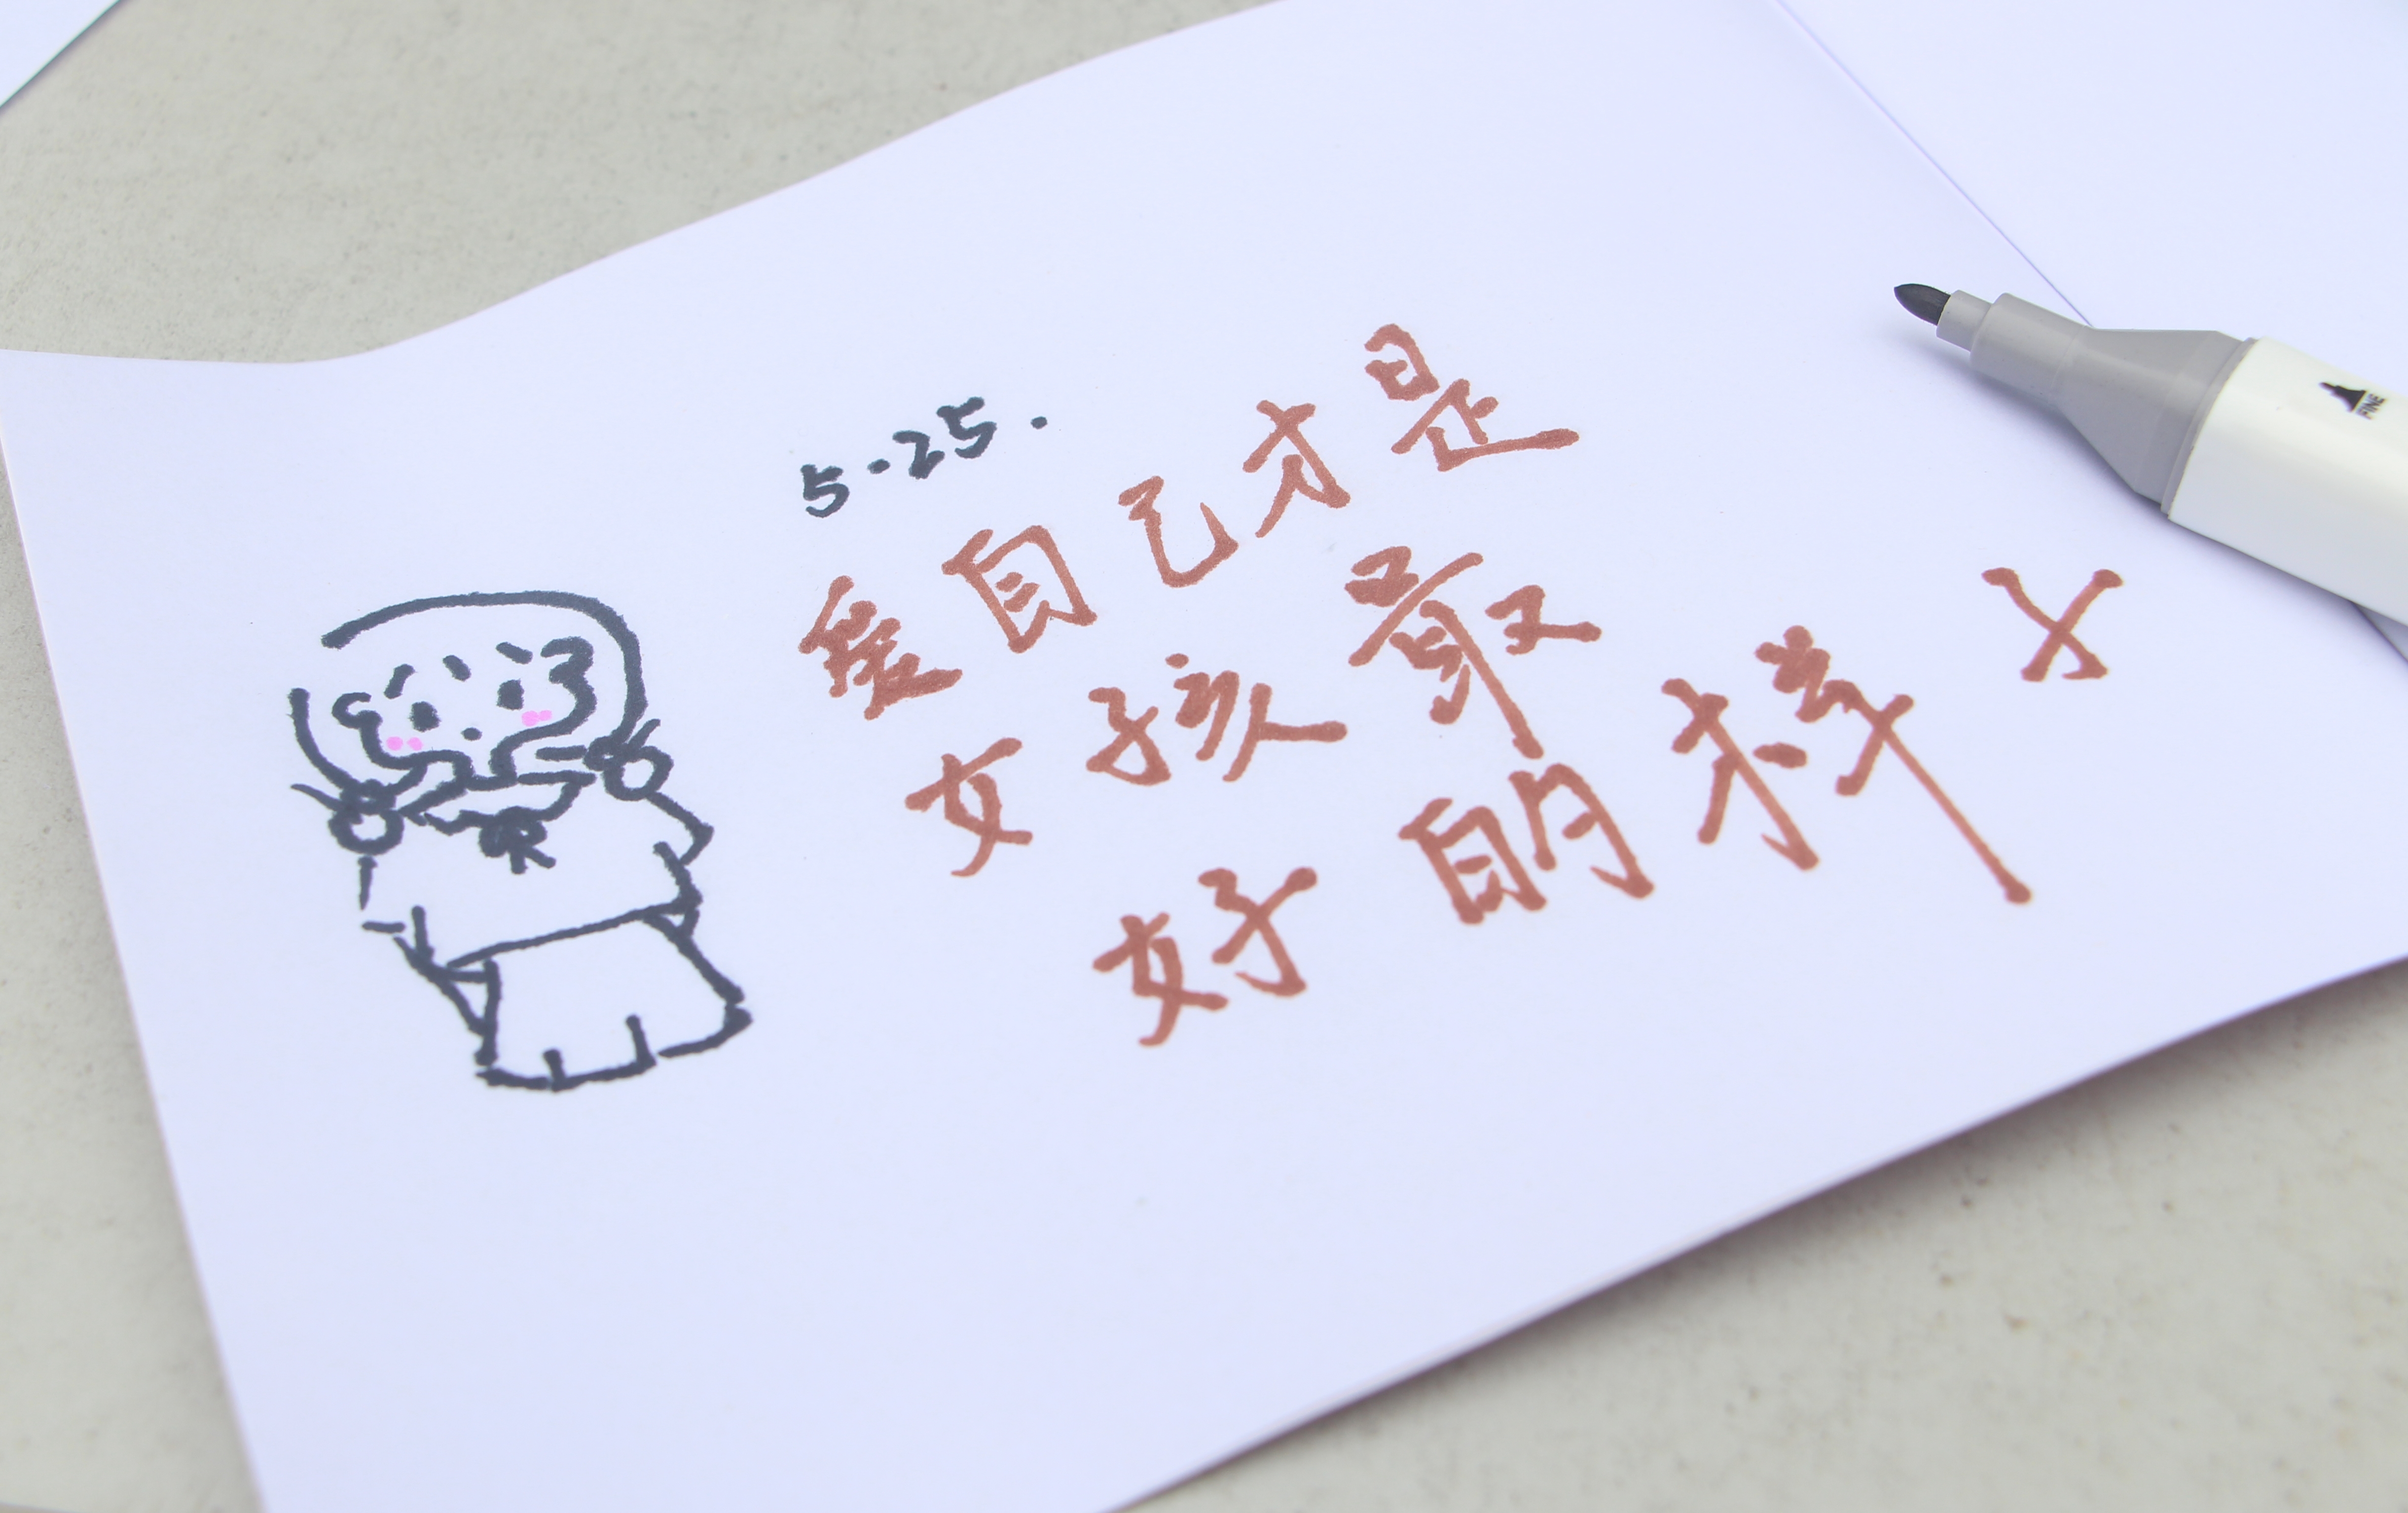 5.25.
爱自己才是
女孩最
好的样子
FINE